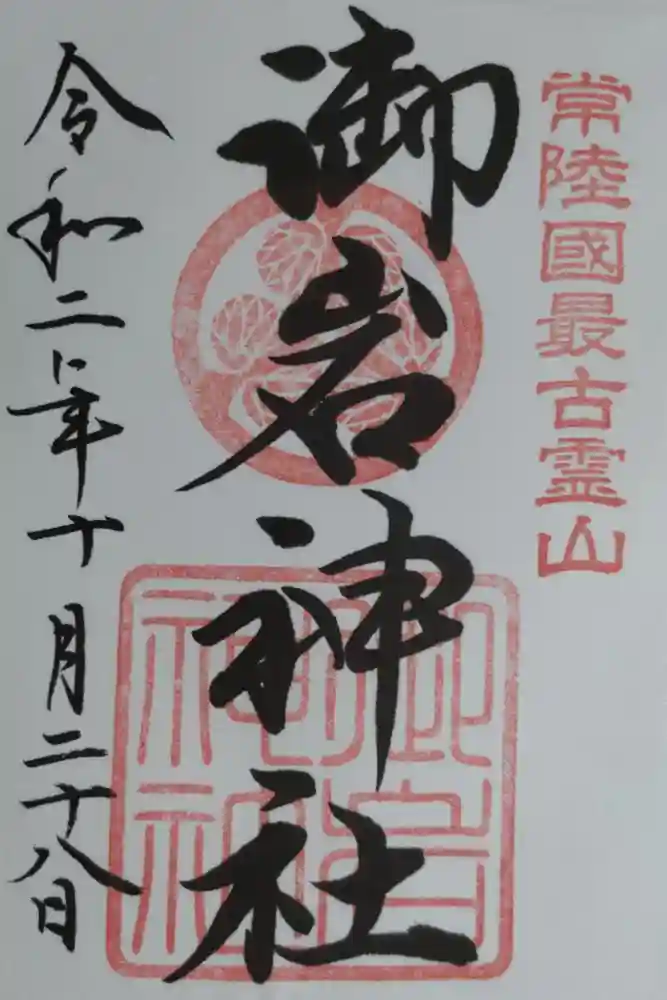 常陸國最古霊山
御岩神社
御岩神社
令和二年十月二十八日